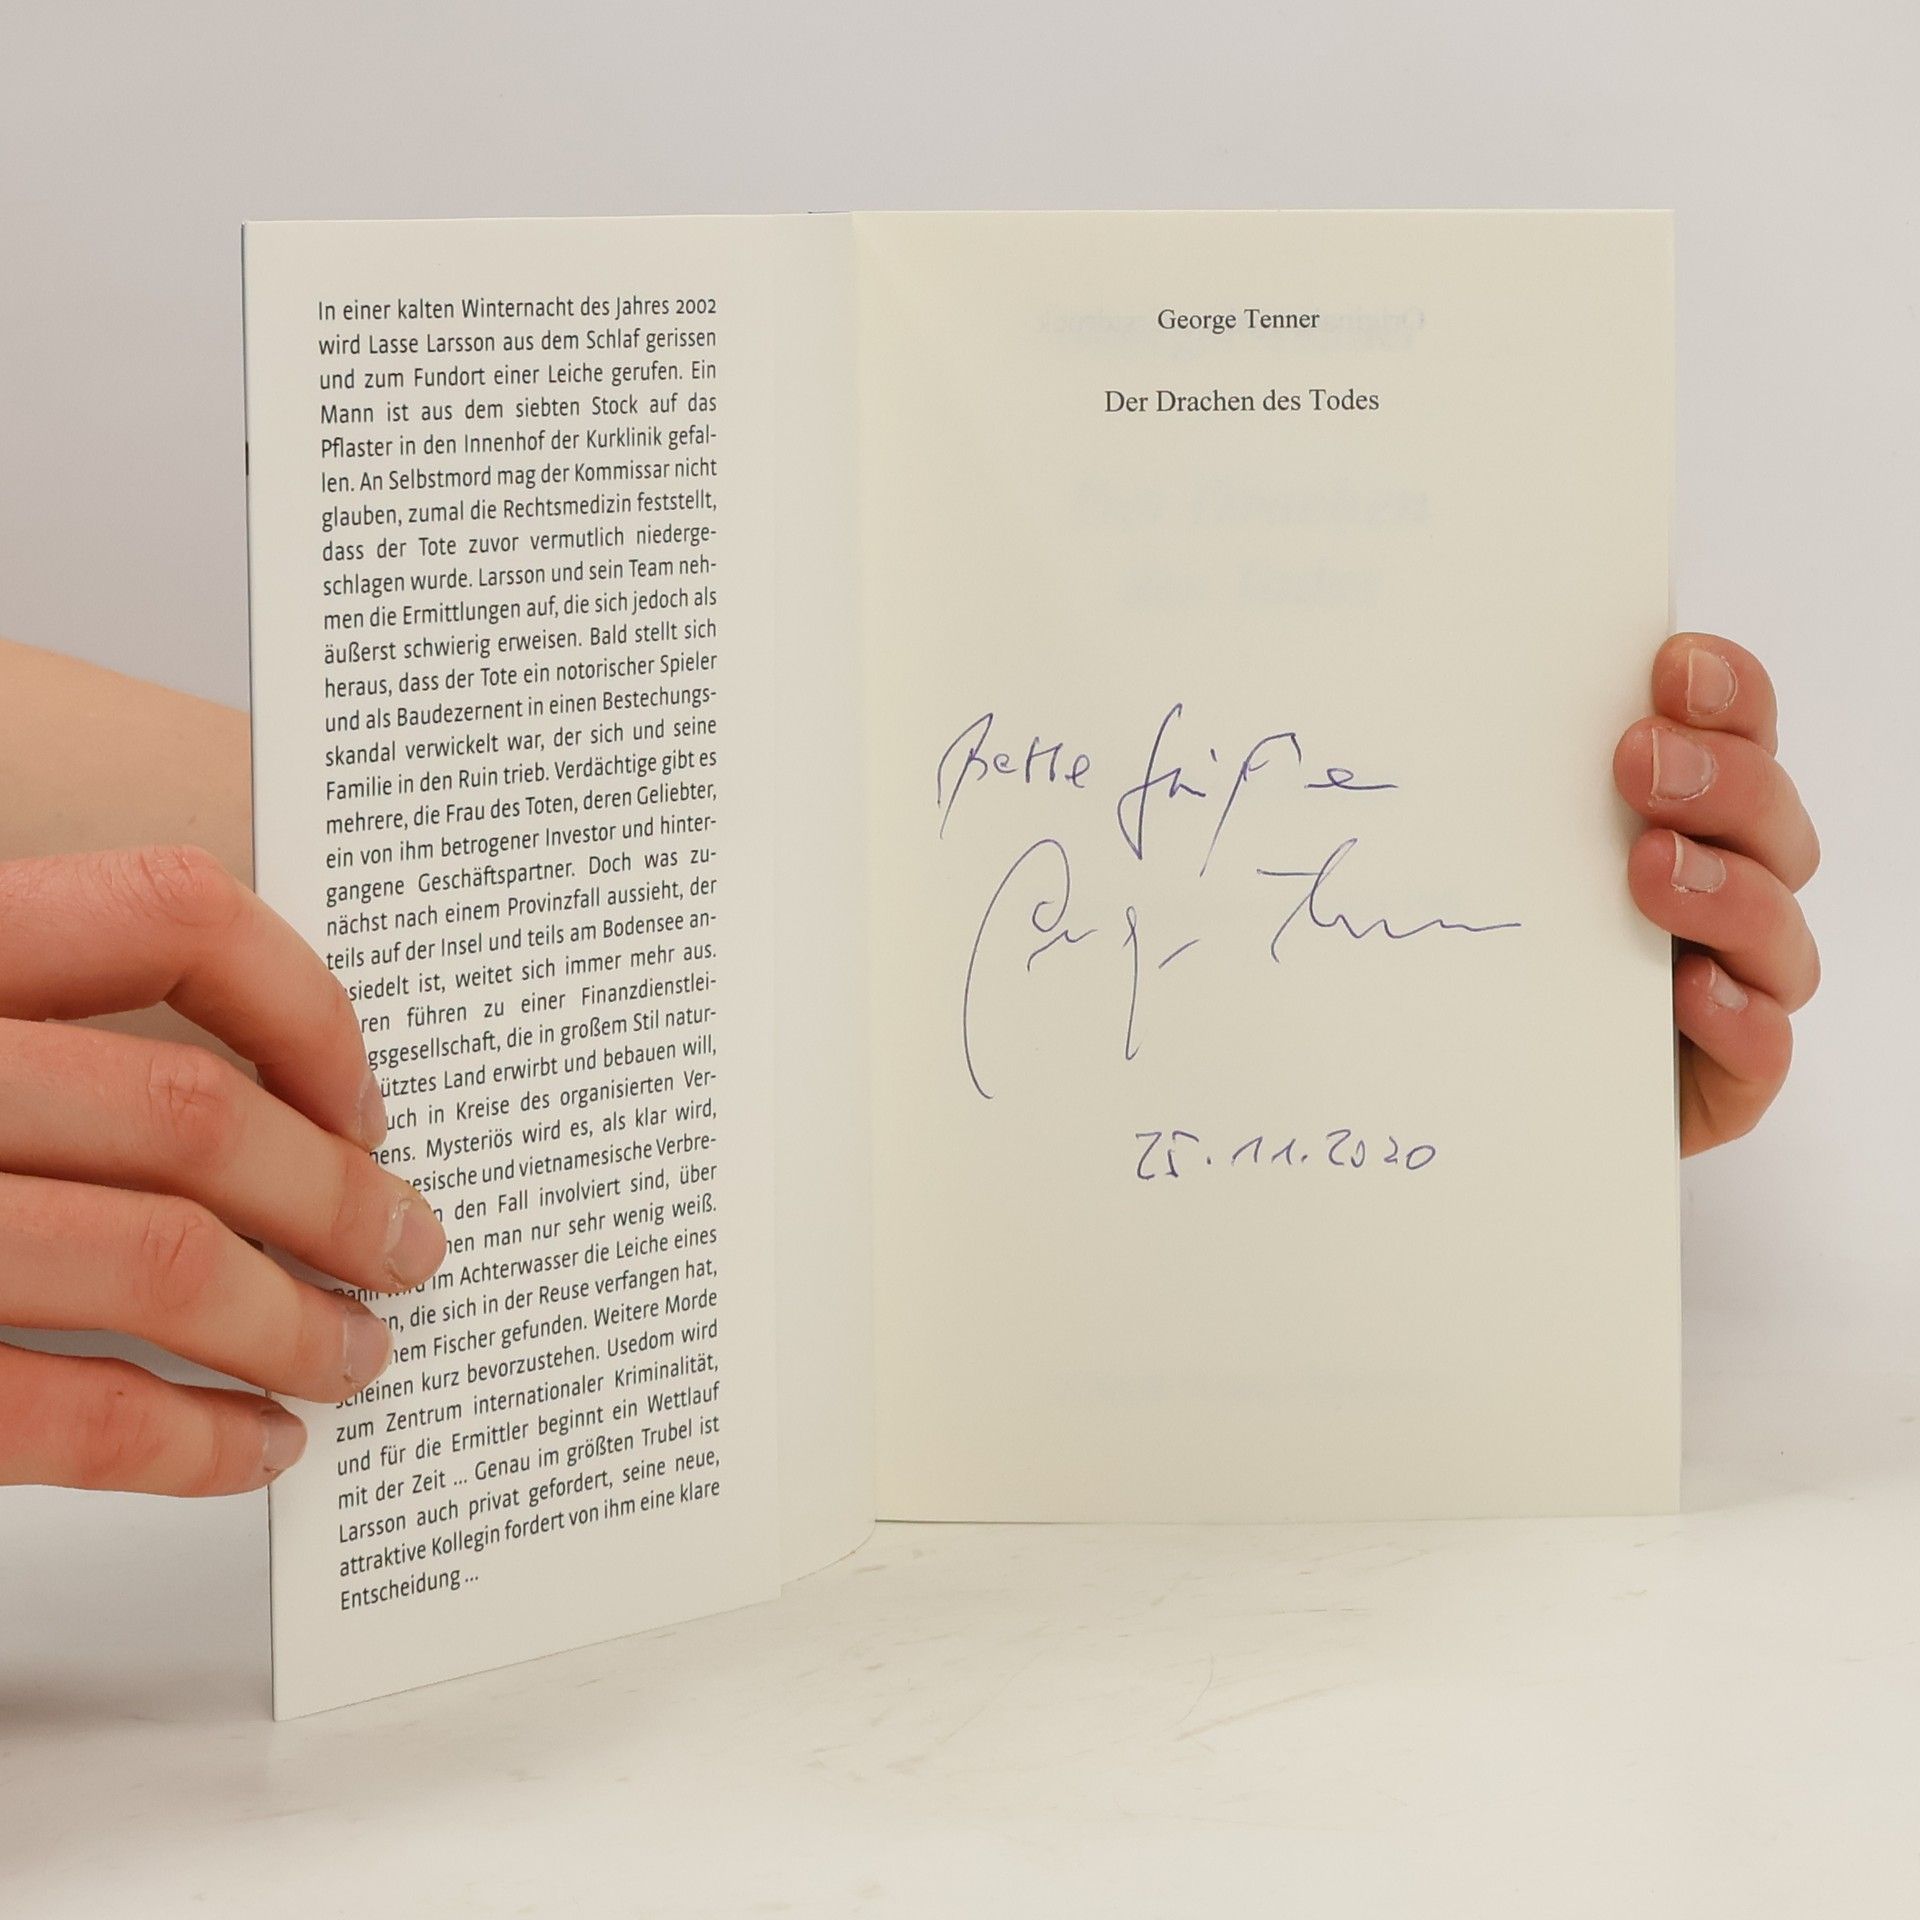 In einer kalten Winternacht des Jahres 2002
wird Lasse Larsson aus dem Schlaf gerissen
und zum Fundort einer Leiche gerufen. Ein
Mann ist aus dem siebten Stock auf das
Pflaster in den Innenhof der Kurklinik gefal-
len. An Selbstmord mag der Kommissar nicht
glauben, zumal die Rechtsmedizin feststellt,
dass der Tote zuvor vermutlich niederge-
schlagen wurde. Larsson und sein Team neh-
men die Ermittlungen auf, die sich jedoch als
äußerst schwierig erweisen. Bald stellt sich
heraus, dass der Tote ein notorischer Spieler
und als Baudezernent in einen Bestechungs-
skandal verwickelt war, der sich und seine
Familie in den Ruin trieb. Verdächtige gibt es
mehrere, die Frau des Toten, deren Geliebter,
ein von ihm betrogener Investor und hinter-
gangene Geschäftspartner. Doch was zu-
nächst nach einem Provinzfall aussieht, der
teils auf der Insel und teils am Bodensee an-
siedelt ist, weitet sich immer mehr aus.
ren führen zu einer Finanzdienstlei-
gsgesellschaft, die in großem Stil natur-
ütztes Land erwirbt und bebauen will,
uch in Kreise des organisierten Ver-
ens. Mysteriös wird es, als klar wird,
esische und vietnamesische Verbre-
n den Fall involviert sind, über
nen man nur sehr wenig weiß.
im Achterwasser die Leiche eines
n, die sich in der Reuse verfangen hat,
nem Fischer gefunden. Weitere Morde
scheinen kurz bevorzustehen. Usedom wird
zum Zentrum internationaler Kriminalität,
und für die Ermittler beginnt ein Wettlauf
mit der Zeit ... Genau im größten Trubel ist
Larsson auch privat gefordert, seine neue,
attraktive Kollegin fordert von ihm eine klare
Entscheidung ...
George Tenner
Der Drachen des Todes
Beste Grüße
George Tenner
25.11.2020